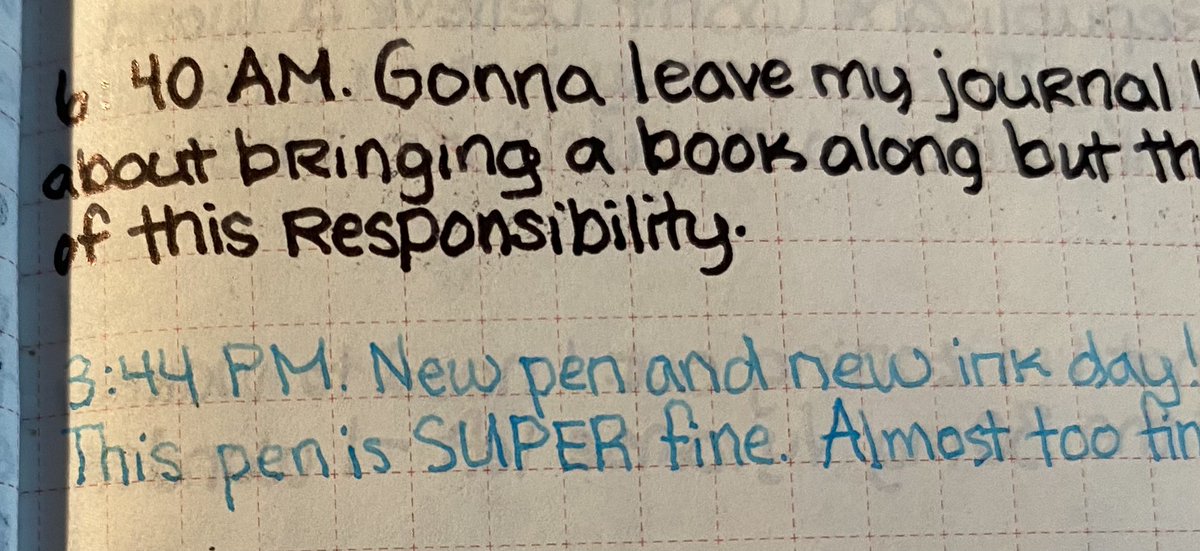 6:40 AM. Gonna leave my journal
about bringing a book along but
of this Responsibility.
3:44 PM. New pen and new ink day!
This pen is SUPER fine. Almost too